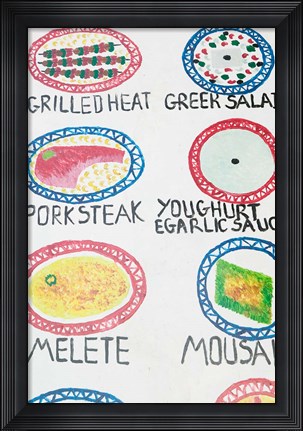 GRILLED HEAT
GREEK SALAT
PORK STEAK
YOUGHURT
EGARLIC SAUC
MELETE
MOUSA